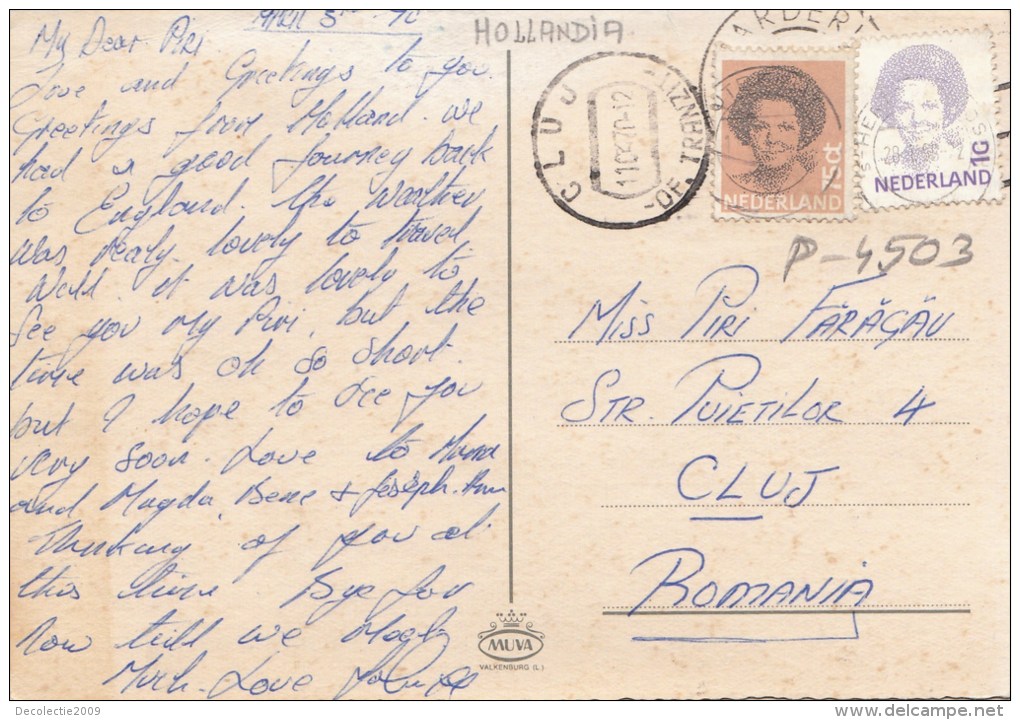 APRIL 5TH 70
HOLLANDIA
My Dear Piri
Love and Greetings to you.
Greetings from Holland. we
had a good Journey back
to England. the weather
was realy lovely to travel
Well. it was lovely to
See you my Piri, but the
time was oh so short.
but I hope to see you
very soon. Love to
and Magda, Bene + Joseph.
Thinking of you al
this time Bye for
Now till we
Much Love
CLUJ
11.0470-12
-OF. TR
75ct
NEDERLAND
1G
NEDERLAND
P-4503
Miss Piri Fărăgău
Str. Puietilor 4
Cluj
Romania
MUVA
VALKENBURG (L.)
Decolectie2009
http://www.delcampe.net